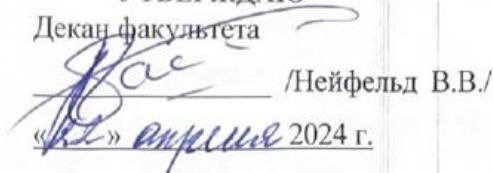 УТВЕРЖДАЮ
Декан факультета
/Нейфельд В.В./
«22» апреля 2024 г.